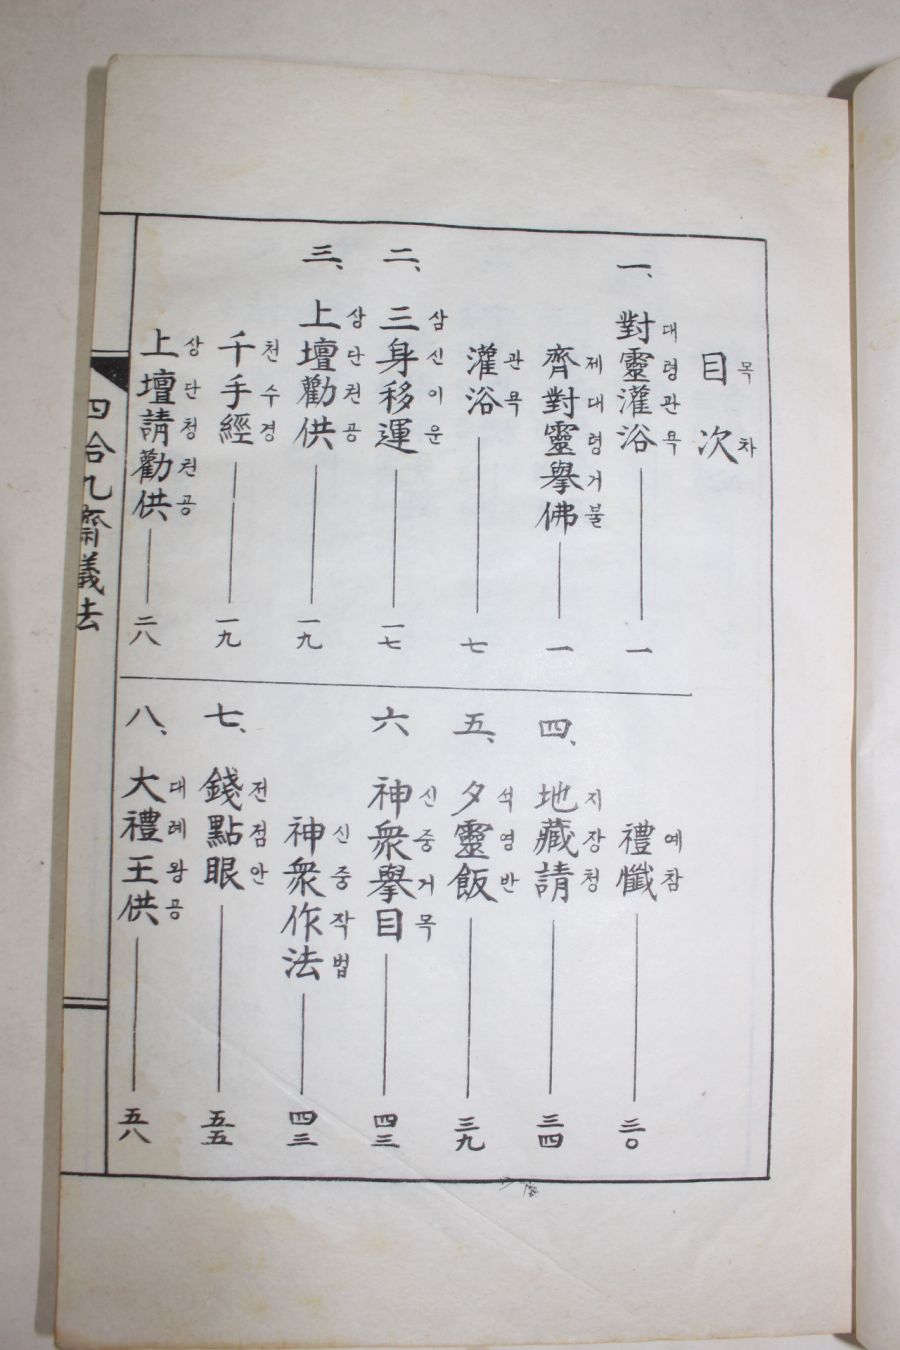 目次
목차
一、對靈灌浴 一
대령관욕
齊對靈擧佛 一
제대령거불
灌浴 七
관욕
二、三身移運 一七
삼신이운
三、上壇勸供 一九
상단권공
千手經 一九
천수경
上壇請勸供 二八
상단청권공
禮懺 三〇
예참
四、地藏請 三四
지장청
五、夕靈飯 三九
석영반
六 神衆擧目 四三
신중거목
神衆作法 四三
신중작법
七、錢點眼 五五
전점안
八、大禮王供 五八
대례왕공
四合九齋儀法